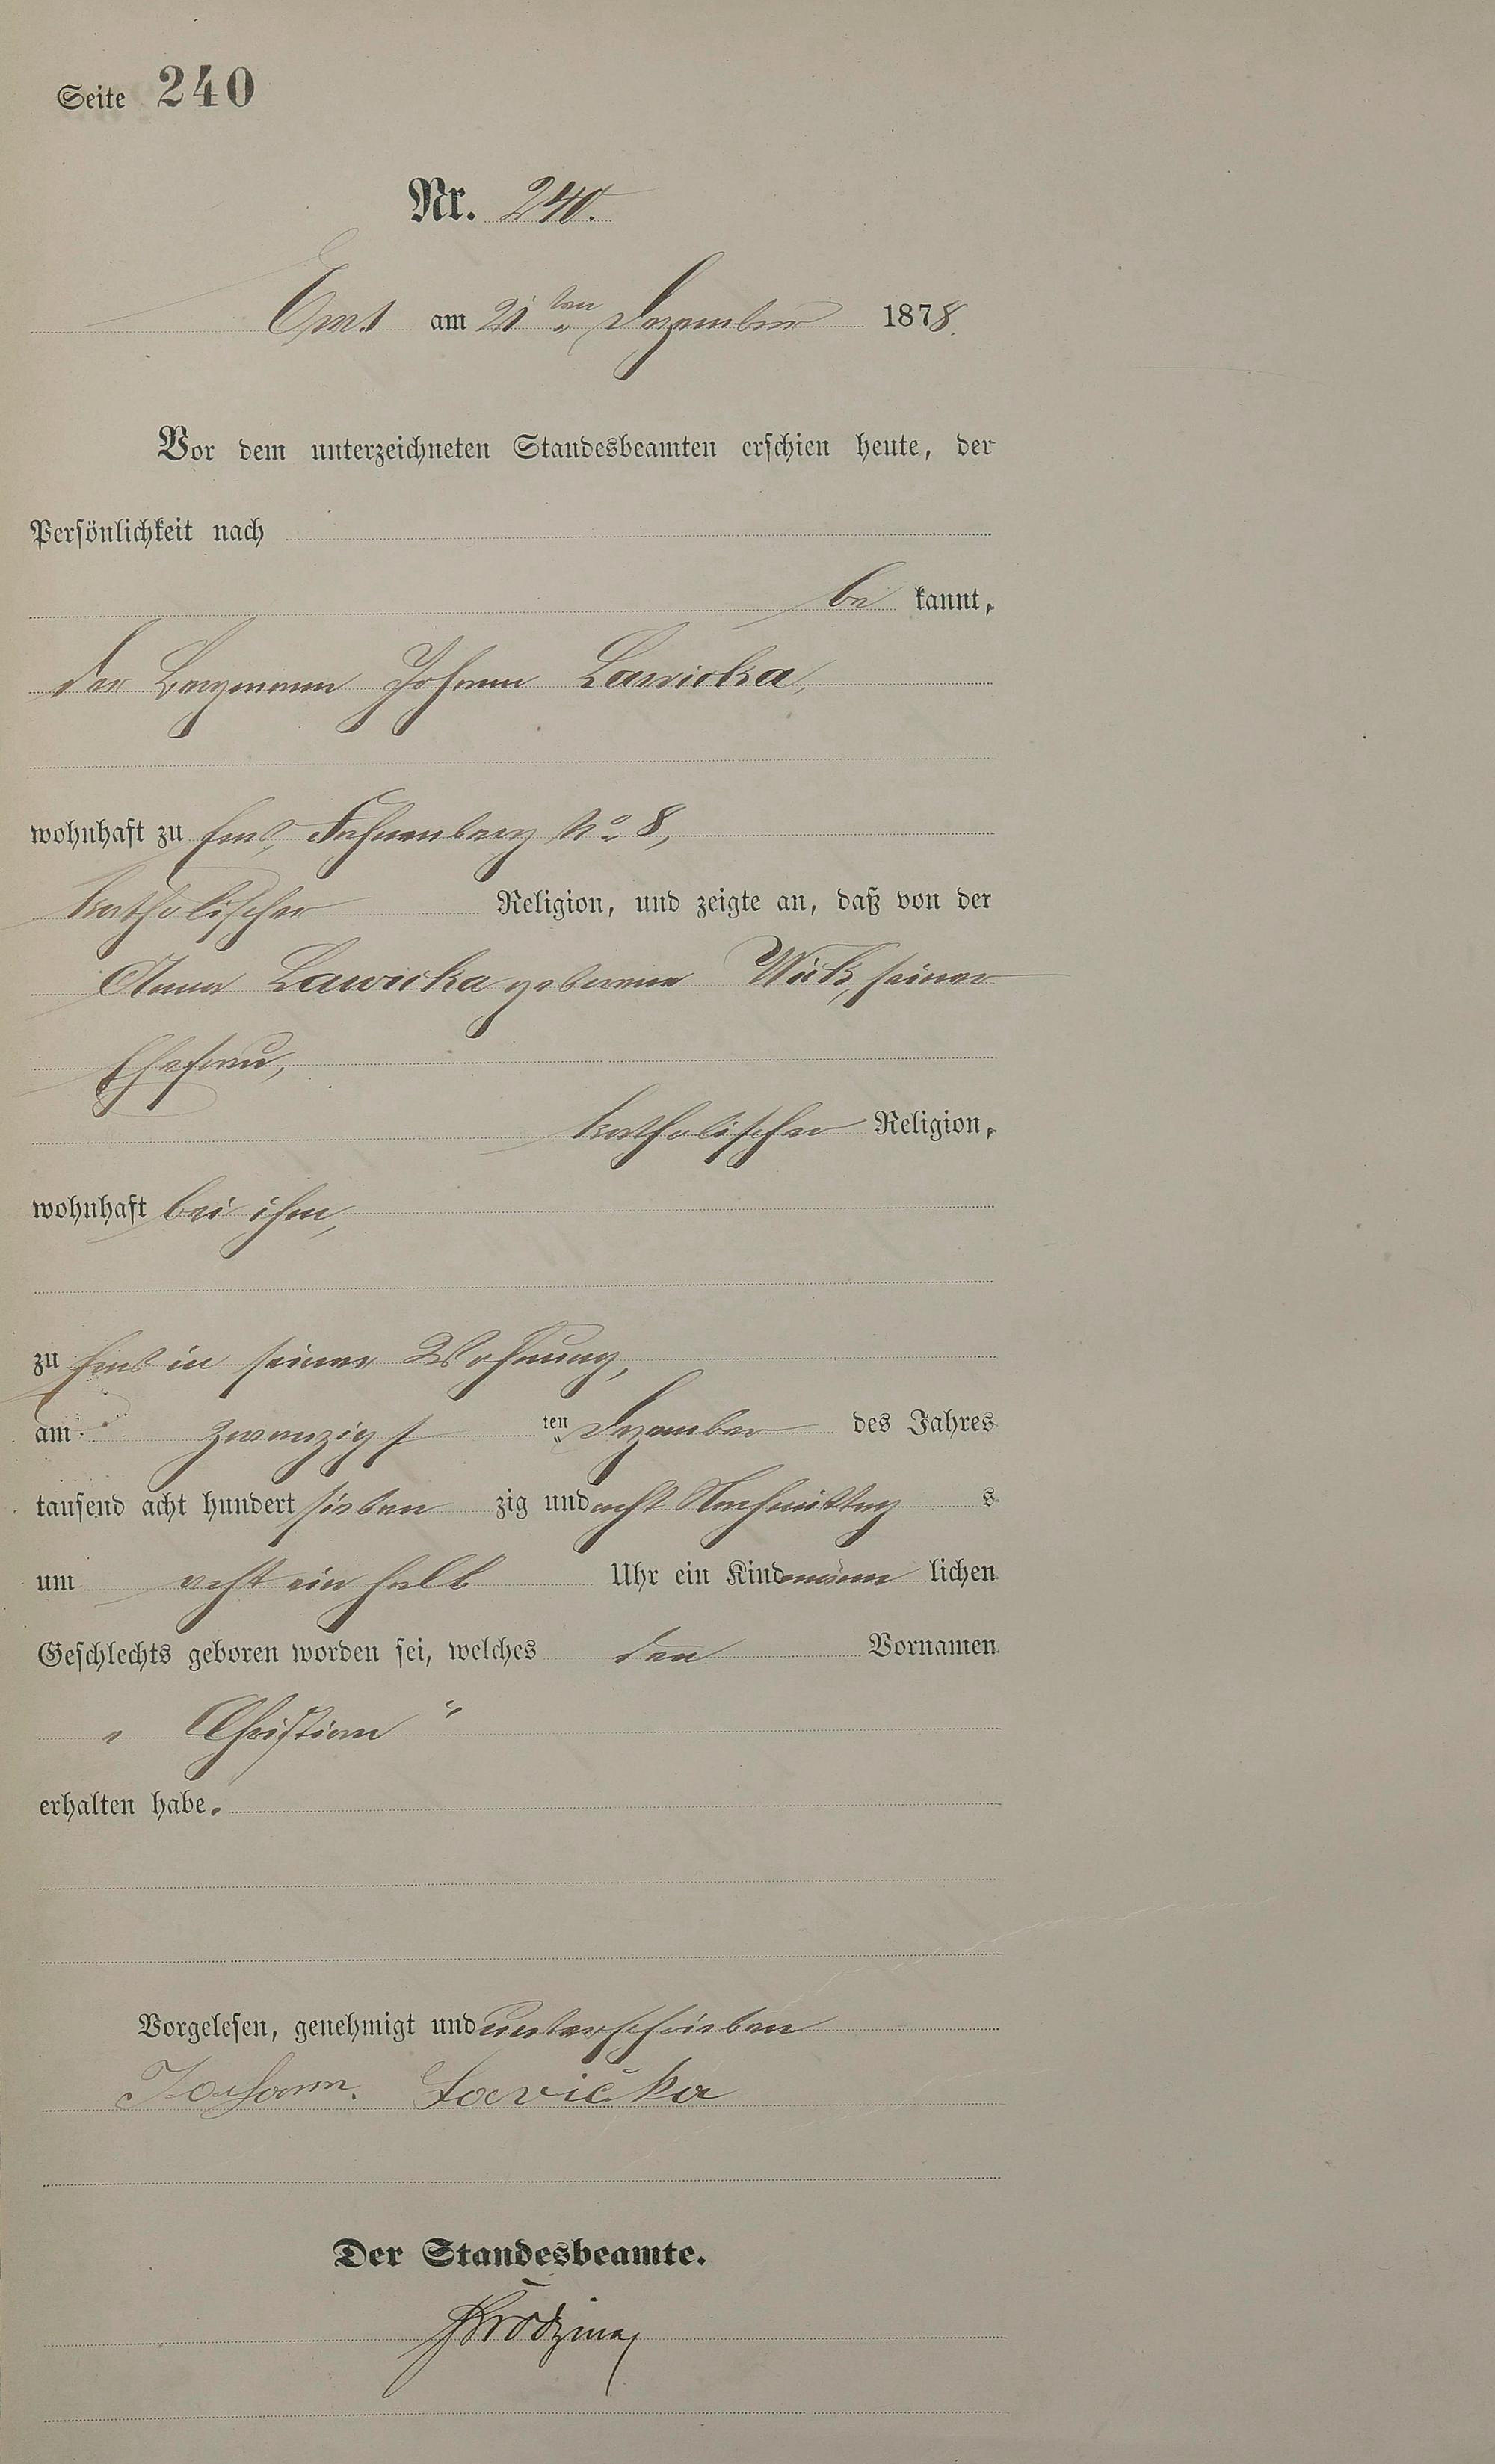 Seite 240
Nr. 240.
Ems am 21ten Dezember 1878.
Vor dem unterzeichneten Standesbeamten erschien heute, der
Persönlichkeit nach
be kannt,
der Bergmann Johann Lawicka,
wohnhaft zu Ems, No 8,
katholischer Religion, und zeigte an, daß von der
Anna Lawicka geborene Wick, seiner
Ehefrau,
katholischer Religion,
wohnhaft bei ihm,
zu Ems in seiner Wohnung,
am zwanzigsten Dezember des Jahres
tausend acht hundert sieben zig und acht Nachmittag s
um acht ein halb Uhr ein Kind männ lichen
Geschlechts geboren worden sei, welches den Vornamen
„ Christian “
erhalten habe.
Vorgelesen, genehmigt und unterschrieben
Johann. Lavička
Der Standesbeamte.